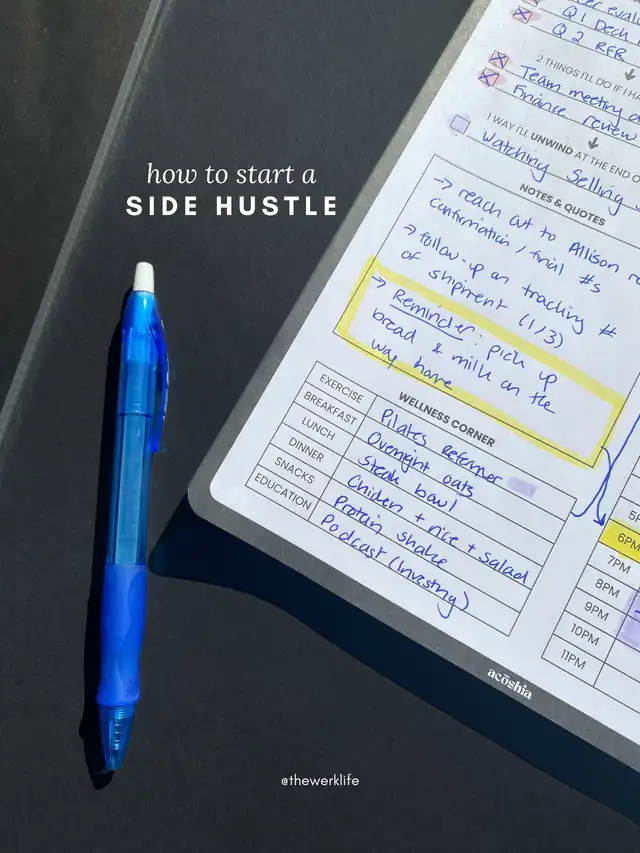 how to start a
SIDE HUSTLE
Q1 Deck
Q2 RFR
2 THINGS I'LL DO IF I
Team meeting
Finance review
1 WAY I'LL UNWIND AT THE END
Watching Selling
NOTES & QUOTES
→ reach out to Allison
confirmation / final #s
→ follow-up on tracking #
of shipment (1/3)
→ Reminder: pick up
bread & milk on the
way home
WELLNESS CORNER
EXERCISE Pilates Reformer
BREAKFAST Overnight oats
LUNCH Steak bowl
DINNER Chicken + rice + salad
SNACKS Protein shake
EDUCATION Podcast (investing)
6PM
7PM
8PM
9PM
10PM
11PM
acōshia
@thewerklife